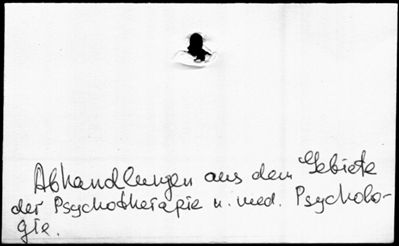 Abhandlungen aus dem Gebiete
der Psychotherapie u. med. Psycholo-
gie.